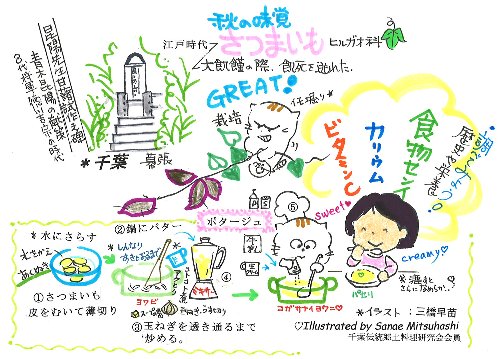 秋の味覚
さつまいも
ヒルガオ科
江戸時代
大飢饉の際、餓死を逃れた。
GREAT!
栽培
芋掘り*
昆陽先生甘藷試作之碑
青木昆陽の献策
8代将軍徳川吉宗の時代
*千葉 幕張
食物センイ
カリウム
ビタミンC
ポタージュ
*水にさらす
あくぬき
①さつまいも
皮をむいて薄切り
②鍋にバター
*しんなり
するまで
ヨワビ
③玉ねぎを透き通るまで
炒める。
④
ミキサー
⑤
牛乳
sweet♥
コガサナイヨウニ♡
creamy♡
パセリ
*漉すと
さらに
*イラスト：三橋早苗
♡Illustrated by Sanae Mitsuhashi
千葉伝統郷土料理研究会会員